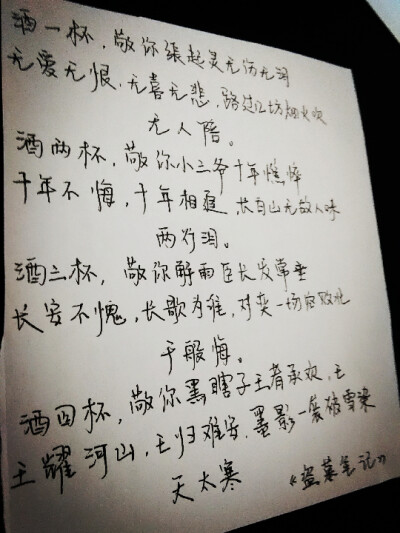 酒一杯，敬你張起灵无伤无泪
无爱无恨，无喜无悲，路过江坊烟火吹
无人陪。
酒两杯，敬你小三爷十年憔悴
十年不悔，十年相逢，长白山无故人味
两行泪。
酒三杯，敬你解雨臣长发常垂
长安不愧，长歌为谁，对奕一场容败北
千般悔。
酒四杯，敬你黑瞎子王者承欢，王
王耀河山，王归难安，墨影一袭被雪染
天太寒 《盗墓笔记》